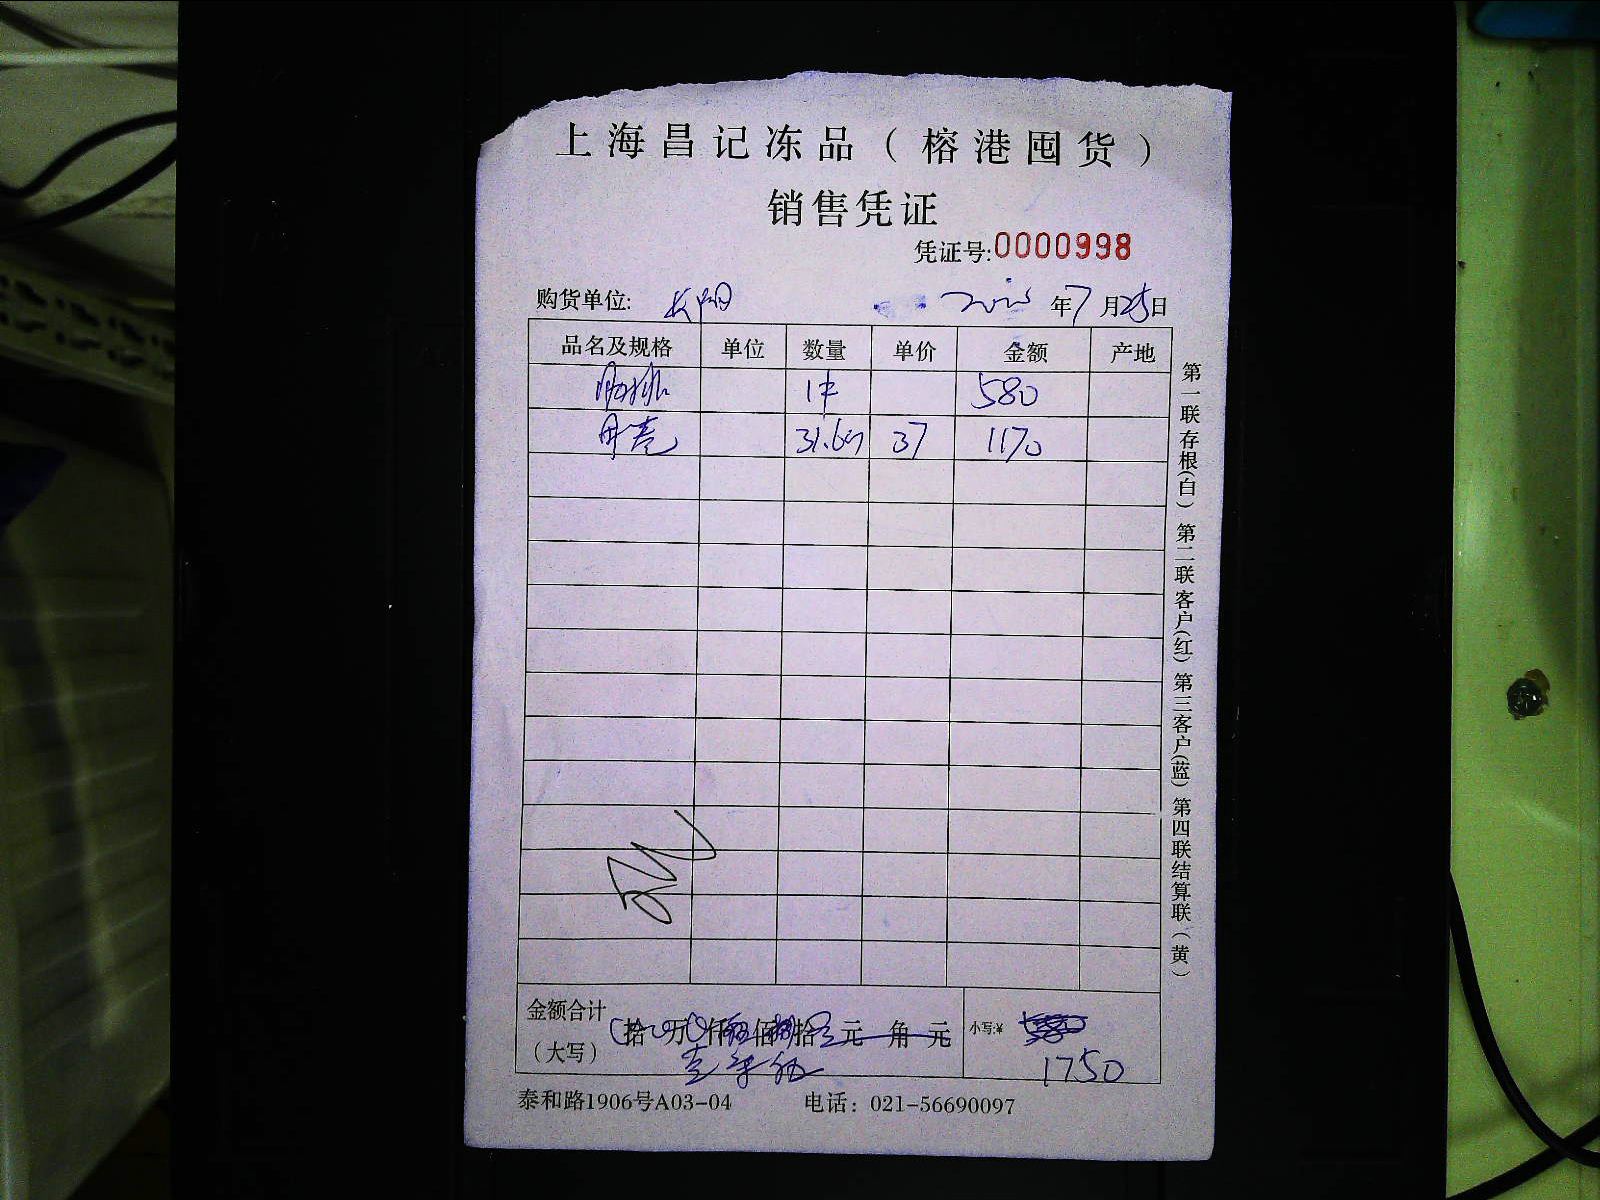 上海昌记冻品（榕港囤货）
销售凭证
凭证号:0000998
购货单位: 年7月25日
品名及规格 单位 数量 单价 金额 产地
1件 580
31.6 37 1170
第一联存根(白) 第二联客户(红) 第三客户(蓝) 第四联结算联(黄)
金额合计（大写） 拾 万 仟 佰 拾 元 角 元 小写:¥ 580
1750
泰和路1906号A03-04 电话：021-56690097